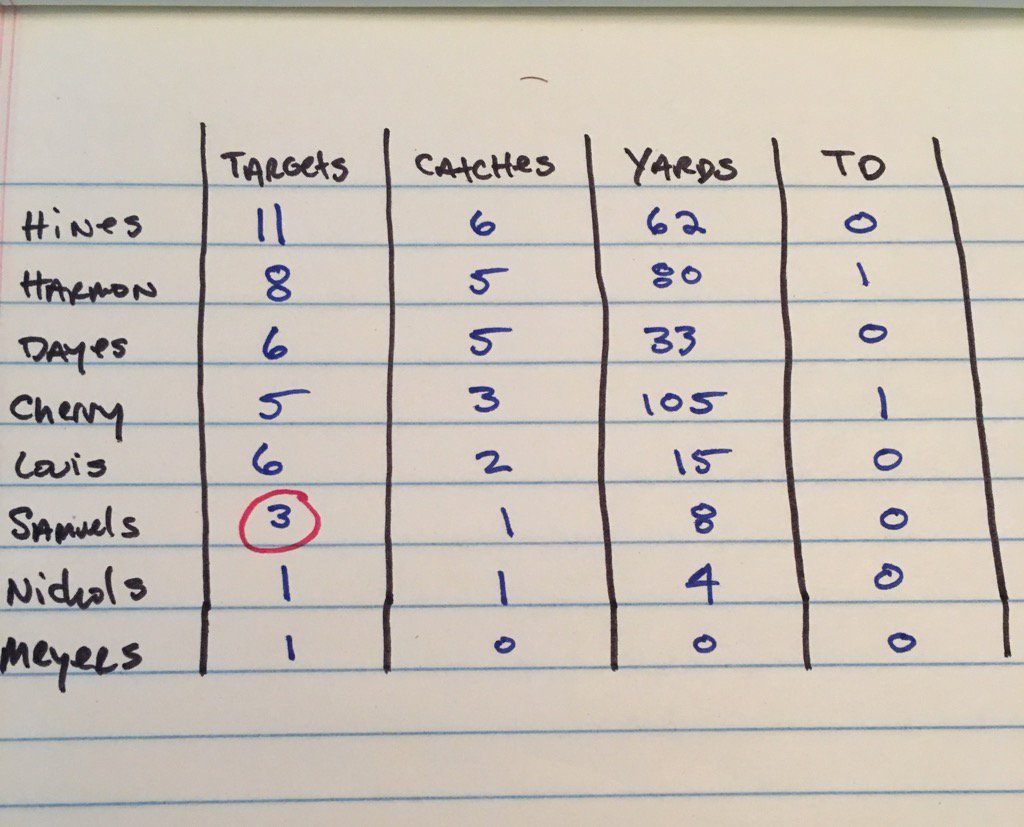 TARGETS CATCHES YARDS TD
HINES 11 6 62 0
HARMON 8 5 80 1
DAYES 6 5 33 0
Cherry 5 3 105 1
Louis 6 2 15 0
SAMUELS 3 1 8 0
Nichols 1 1 4 0
MEYERS 1 0 0 0